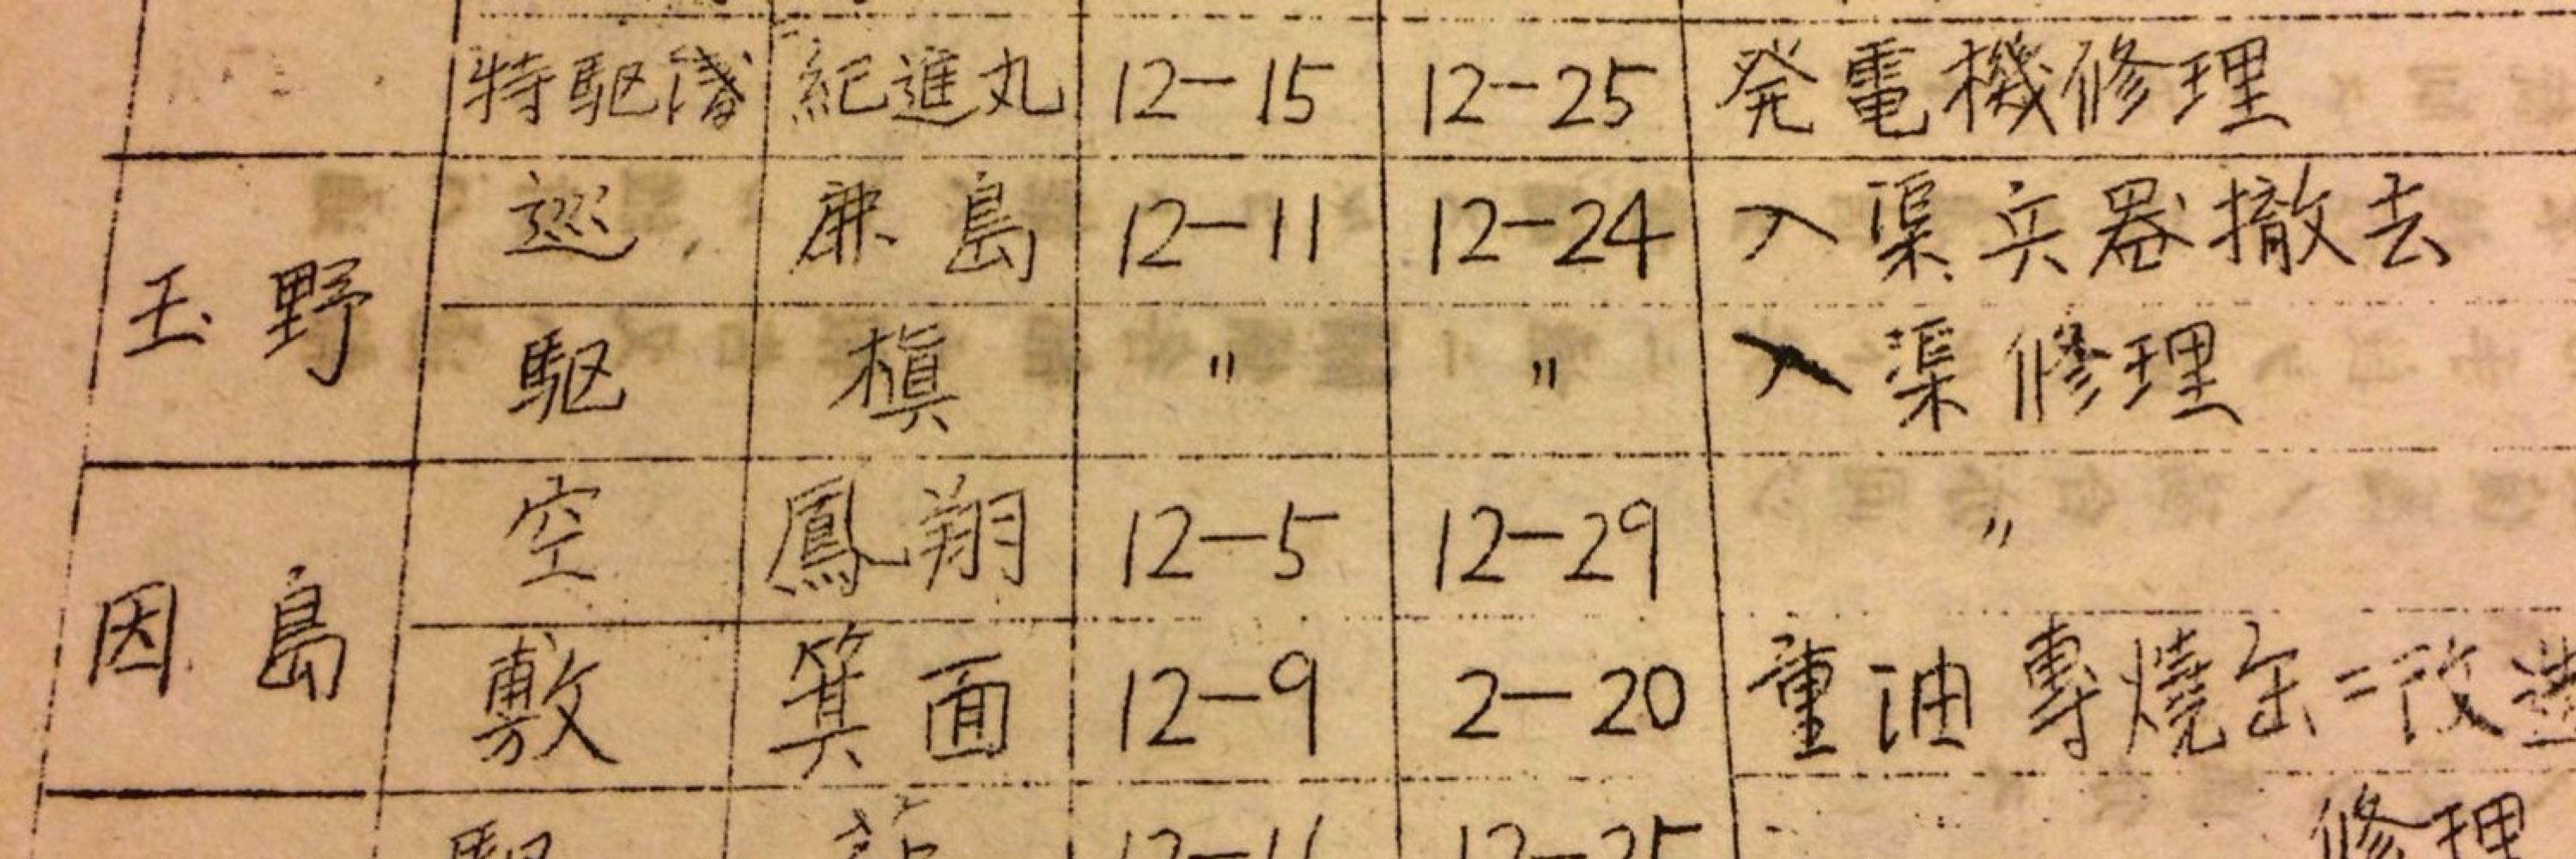 特駆潜 紀進丸 12-15 12-25 発電機修理
玉野 巡 鹿島 12-11 12-24 入渠兵器撤去
駆 槇 〃 〃 入渠修理
因島 空 鳳翔 12-5 12-29 〃
敷 箕面 12-9 2-20 重油専焼缶ニ改造
駆 修理